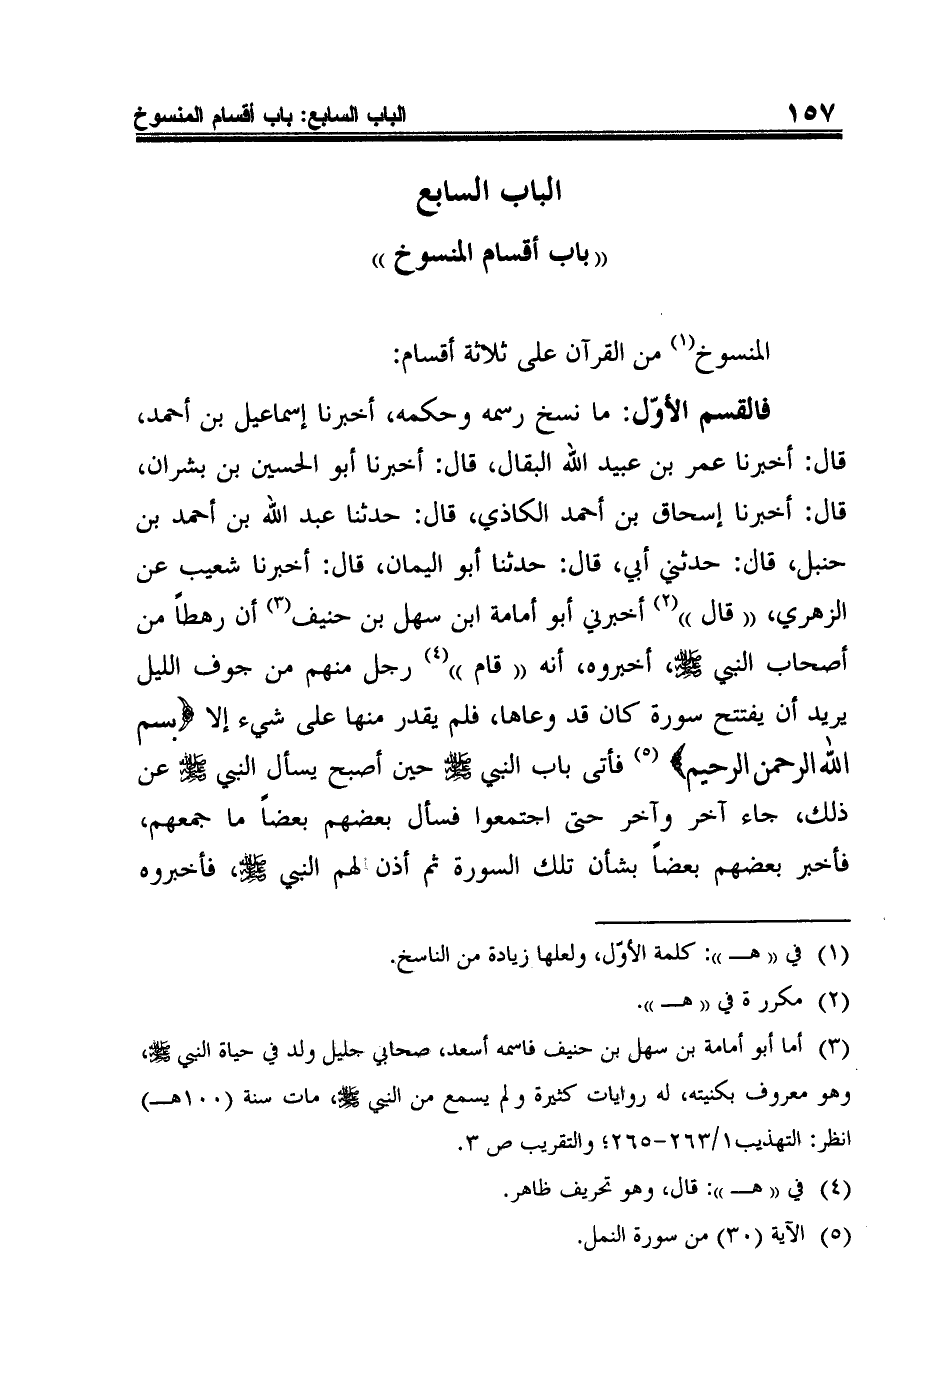 ١٥٧ الباب السابع: باب أقسام المنسوخ
الباب السابع
(( باب أقسام المنسوخ ))
المنسوخ(١) من القرآن على ثلاثة أقسام:
فالقسم الأوّل: ما نسخ رسمه وحكمه، أخبرنا إسماعيل بن أحمد،
قال: أخبرنا عمر بن عبيد الله البقال، قال: أخبرنا أبو الحسين بن بشران،
قال: أخبرنا إسحاق بن أحمد الكاذي، قال: حدثنا عبد الله بن أحمد بن
حنبل، قال: حدثني أبي، قال: حدثنا أبو اليمان، قال: أخبرنا شعيب عن
الزهري، (( قال ))(٢) أخبرني أبو أمامة ابن سهل بن حنيف(٣) أن رهطاً من
أصحاب النبي ﷺ، أخبروه، أنه (( قام ))(٤) رجل منهم من جوف الليل
يريد أن يفتتح سورة كان قد وعاها، فلم يقدر منها على شيء إلا ﴿بسم
الله الرحمن الرحيم﴾ (٥) فأتى باب النبي ﷺ حين أصبح يسأل النبي ﷺ عن
ذلك، جاء آخر وآخر حتى اجتمعوا فسأل بعضهم بعضاً ما جمعهم،
فأخبر بعضهم بعضاً بشأن تلك السورة ثم أذن لهم النبي ﷺ، فأخبروه
(١) في (( هــ )): كلمة الأوّل، ولعلها زيادة من الناسخ.
(٢) مكررة في (( هــ )).
(٣) أما أبو أمامة بن سهل بن حنيف فاسمه أسعد، صحابي جليل ولد في حياة النبي ﷺ،
وهو معروف بكنيته، له روايات كثيرة ولم يسمع من النبي ﷺ، مات سنة (١٠٠هــ)
انظر: التهذيب١/٢٦٣-٢٦٥؛ والتقريب ص ٣.
(٤) في (( هــ )): قال، وهو تحريف ظاهر.
(٥) الآية (٣٠) من سورة النمل.